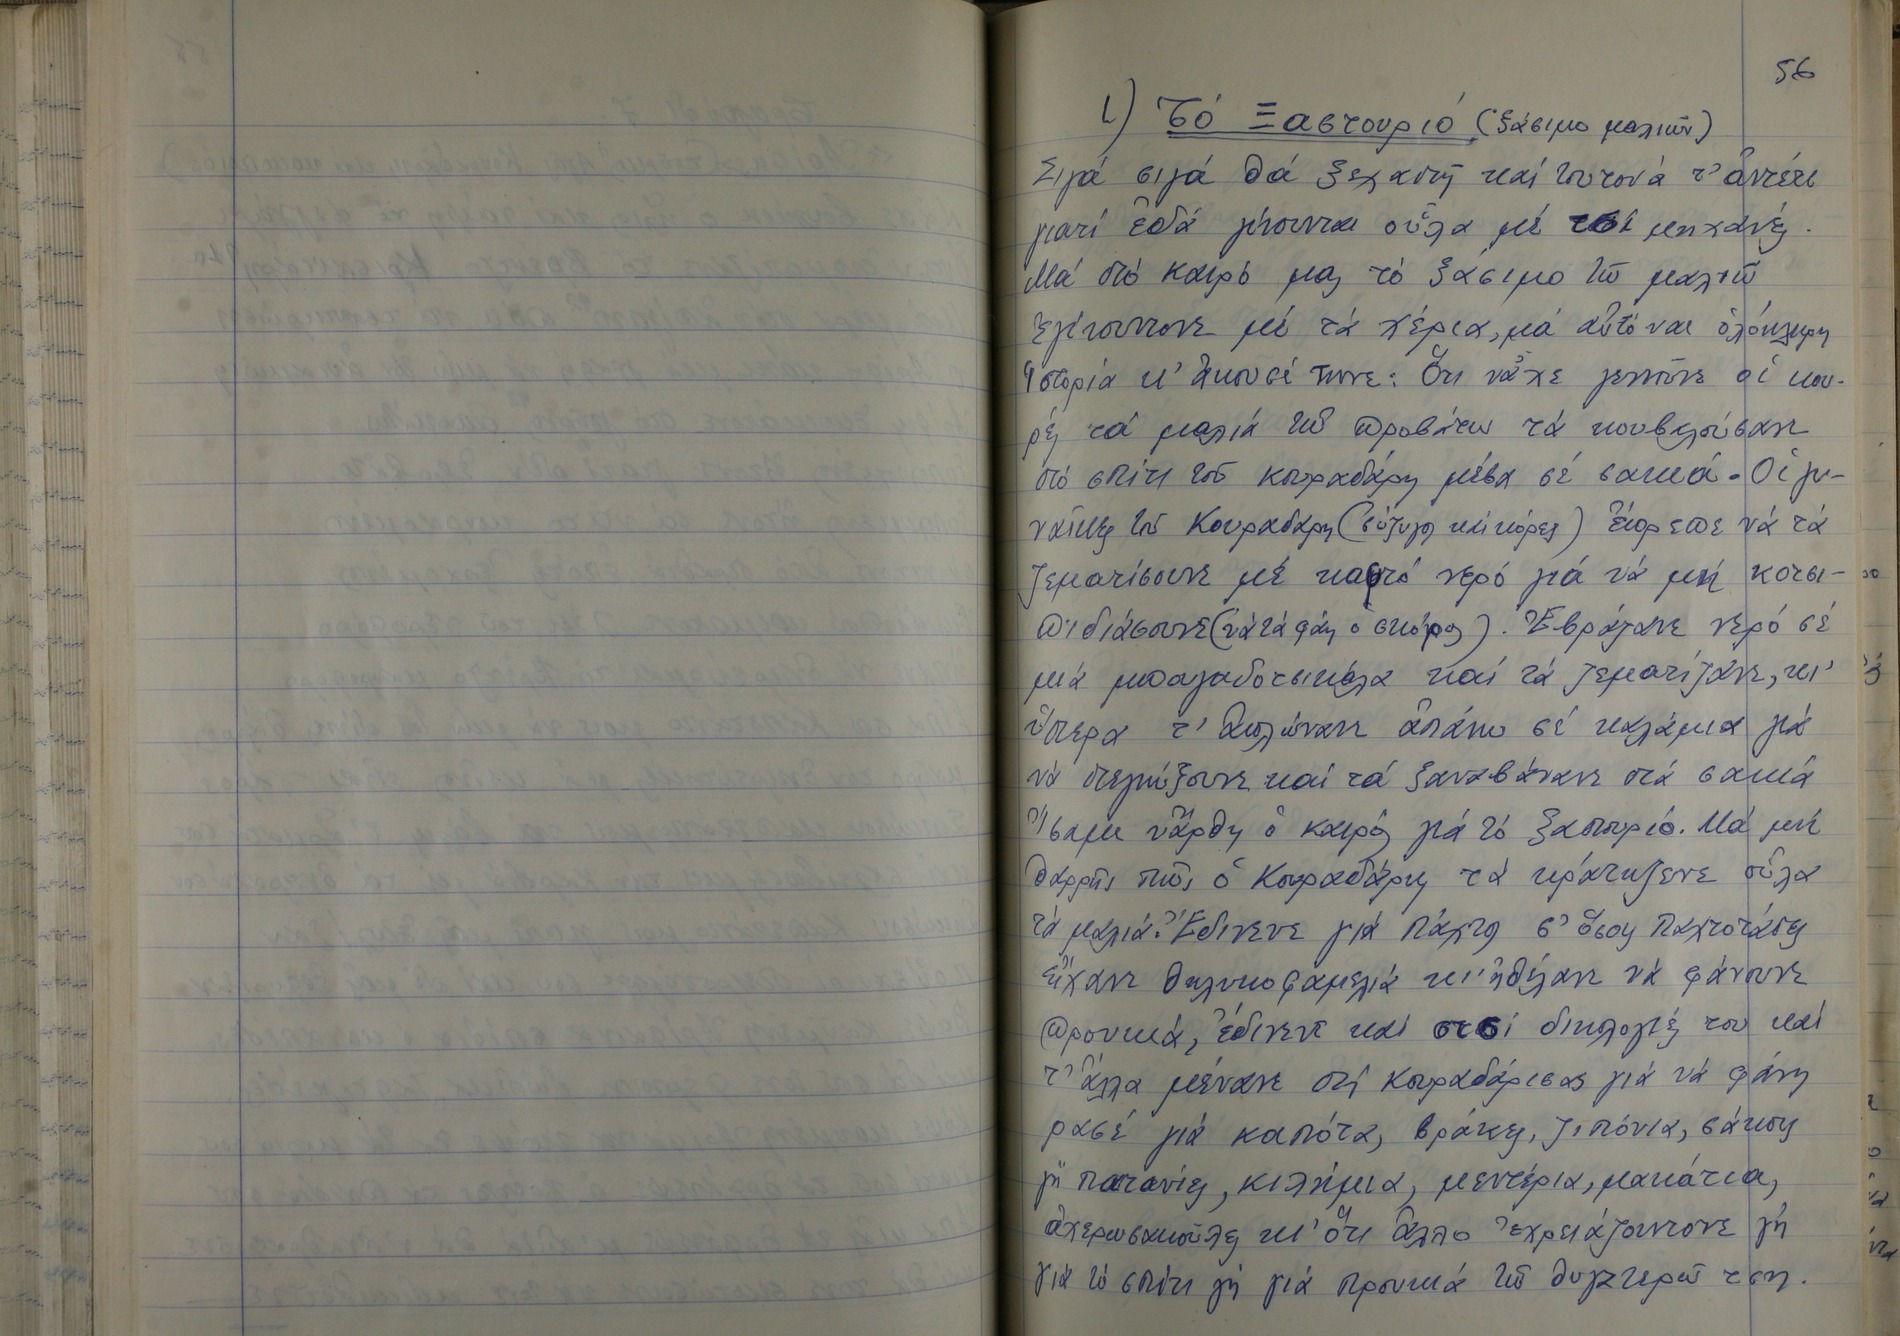 56
ι) Τό Ξαστουριό (ξάσιμο μαλιῶν)
Σιγά σιγά θά ξεχαστῇ καί τουτονά τ' ἀντέτι
γιατί ἐδά γίνουνται οὗλα μέ τσί μηχανές.
Μά στό καιρό μας τό ξάσιμο τῶ μαλιῶ
ἐγίνουντονε μέ τά χέρια, μά αὐτό ναι ὁλόκληρη
ἱστορία κ' ἄκουσέ τηνε: Ὅτι νἄχε γενοῦνε οἱ κου-
ρές τά μαλιά τῶ προβάτω τά κουβαλούσανε
στό σπίτι τοῦ κουραδάρη μέσα σέ σακιά. Οἱ γυ-
ναῖκες τοῦ Κουραδάρη (σύζυγος καί κόρες) ἔπρεπε νά τά
ζεματίσουνε μέ καφτό νερό γιά νά μή κοτσι-
πιδιάσουνε (νά τά φάῃ ὁ σκόρος). Ἐβράζανε νερό σέ
μιά μπουγαδοτσικάλα καί τά ζεματίζανε, κι'
ὕστερα τ' ἁπλώνανε ἀπάνω σέ καλάμια γιά
νά στεγνώξουνε καί τά ξαναβάνανε στά σακιά
ἴσαμε νἄρθη ὁ καιρός γιά τό ξαστουριό. Μά μή
θαρρῆς πῶς ὁ Κουραδάρης τά κράτηζενε οὗλα
τά μαλιά. Ἐδινενε γιά πάχτος σ' ὅσους παχτοτάδες
εἴχανε θηλυκοφαμελιά κι' ἠθέλανε νά φάνουνε
προυκιά, ἐδινενε καί στσί δικολογιές του καί
τ' ἄλλα μένανε στή κουραδάρισας γιά νά φάνη
ρασέ γιά καπότα, βράκες, ζιπόνια, σάκους
γή πατανίες, κιλήμια, μεντέρια, μακάτια,
ἀχερωσακοῦλες κι' ὅτι ἄλλο ἐχρειάζουντονε γή
γιά τό σπίτι γή γιά προυκιά τῶ θυγατερῶ τση.